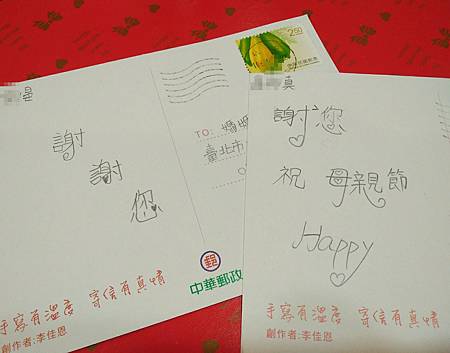 謝
謝
您
手寫有溫度 寄信有真情
創作者:李佳恩
2.50
TO: 婚
臺北市
郵
中華郵政
真
謝您
祝 母親節
Happy
手寫有溫度 寄信有真情
創作者:李佳恩